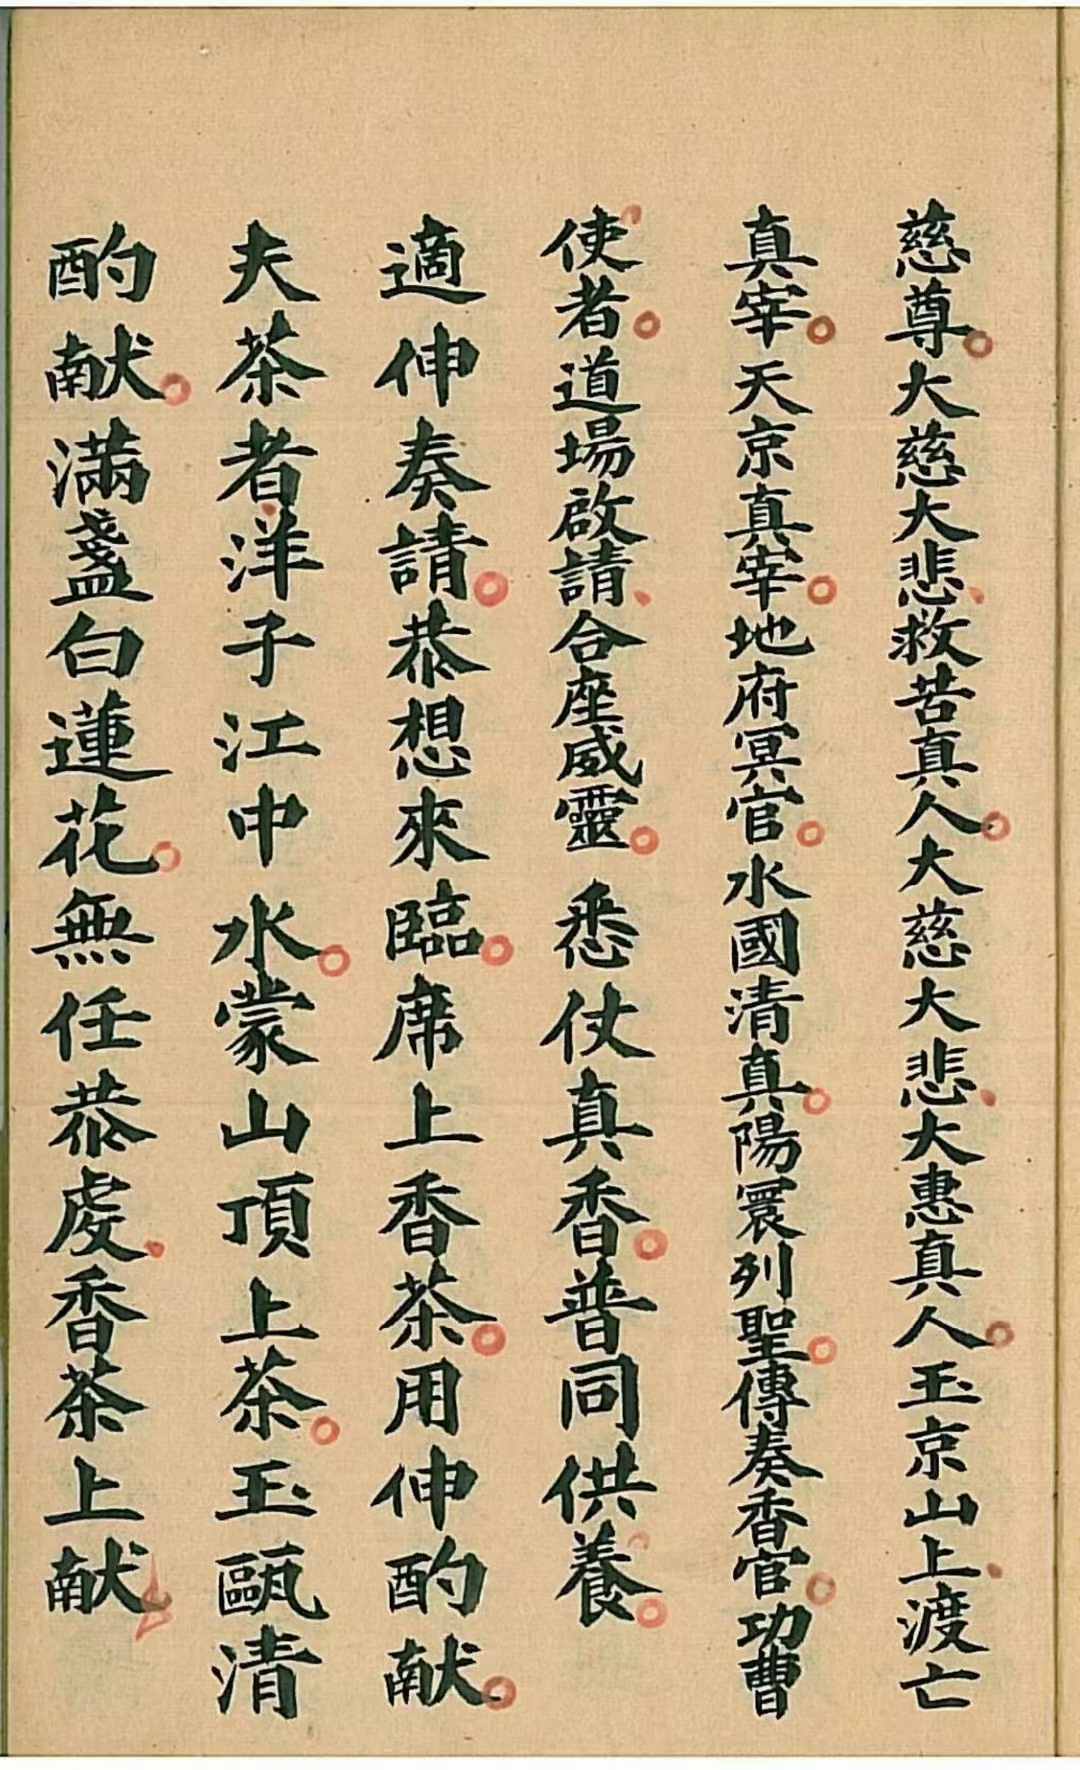 慈尊大慈大悲救苦真人大慈大悲大惠真人玉京山上渡亡
真宰天京真宰地府冥官水國清真陽寰列聖傳奏香官功曹
使者道場啟請合座威靈悉仗真香普同供養
適伸奏請恭想來臨席上香茶用伸酌献
夫茶者洋子江中水蒙山頂上茶玉甌清
酌献滿盞白蓮花無任恭虔香茶上献